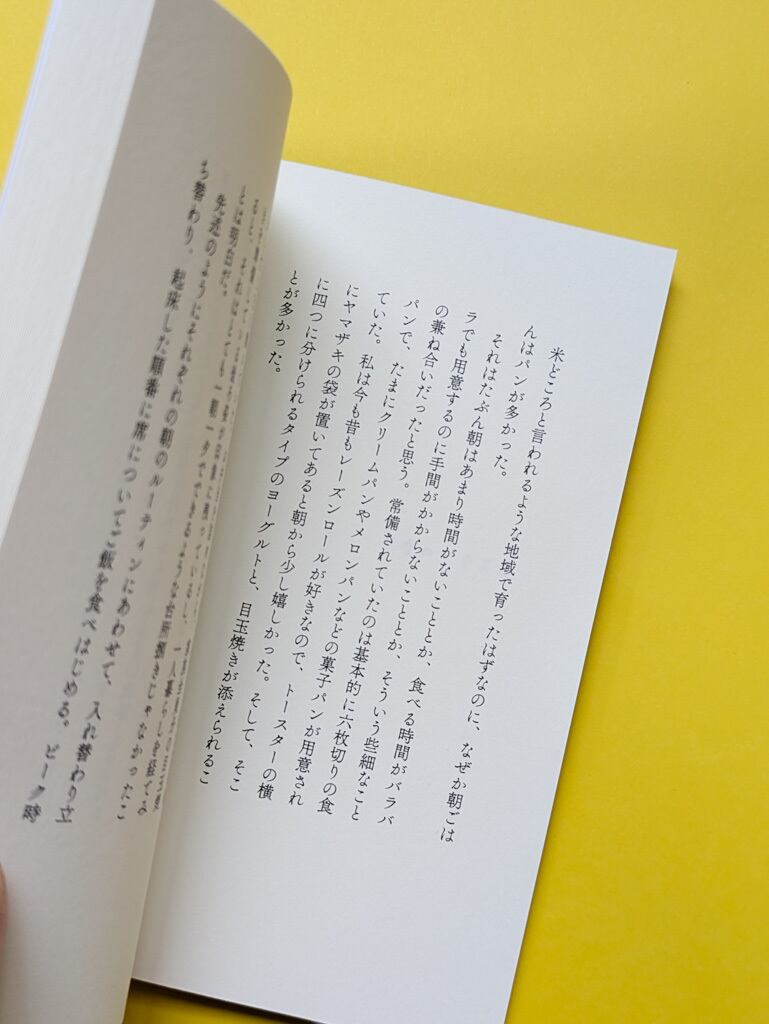 米どころと言われるような地域で育ったはずなのに、なぜか朝ごは
んはパンが多かった。
それはたぶん朝はあまり時間がないこととか、食べる時間がバラバ
ラでも用意するのに手間がかからないこととか、そういう些細なこと
の兼ね合いだったと思う。常備されていたのは基本的に六枚切りの食
パンで、たまにクリームパンやメロンパンなどの菓子パンが用意され
ていた。私は今も昔もレーズンロールが好きなので、トースターの横
にヤマザキの袋が置いてあると朝から少し嬉しかった。そして、そこ
に四つに分けられるタイプのヨーグルトと、目玉焼きが添えられるこ
とが多かった。
一人暮らしを経てみ
とは明白だ。
先述のようにそれぞれの朝のルーティンにあわせて、入れ替わり立
ち替わり、起床した順番に席についてご飯を食べはじめる。ピーク時